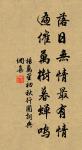 落日無情最有情
遍催萬樹暮蟬鳴
楊萬里初秋行圃詞典
網集